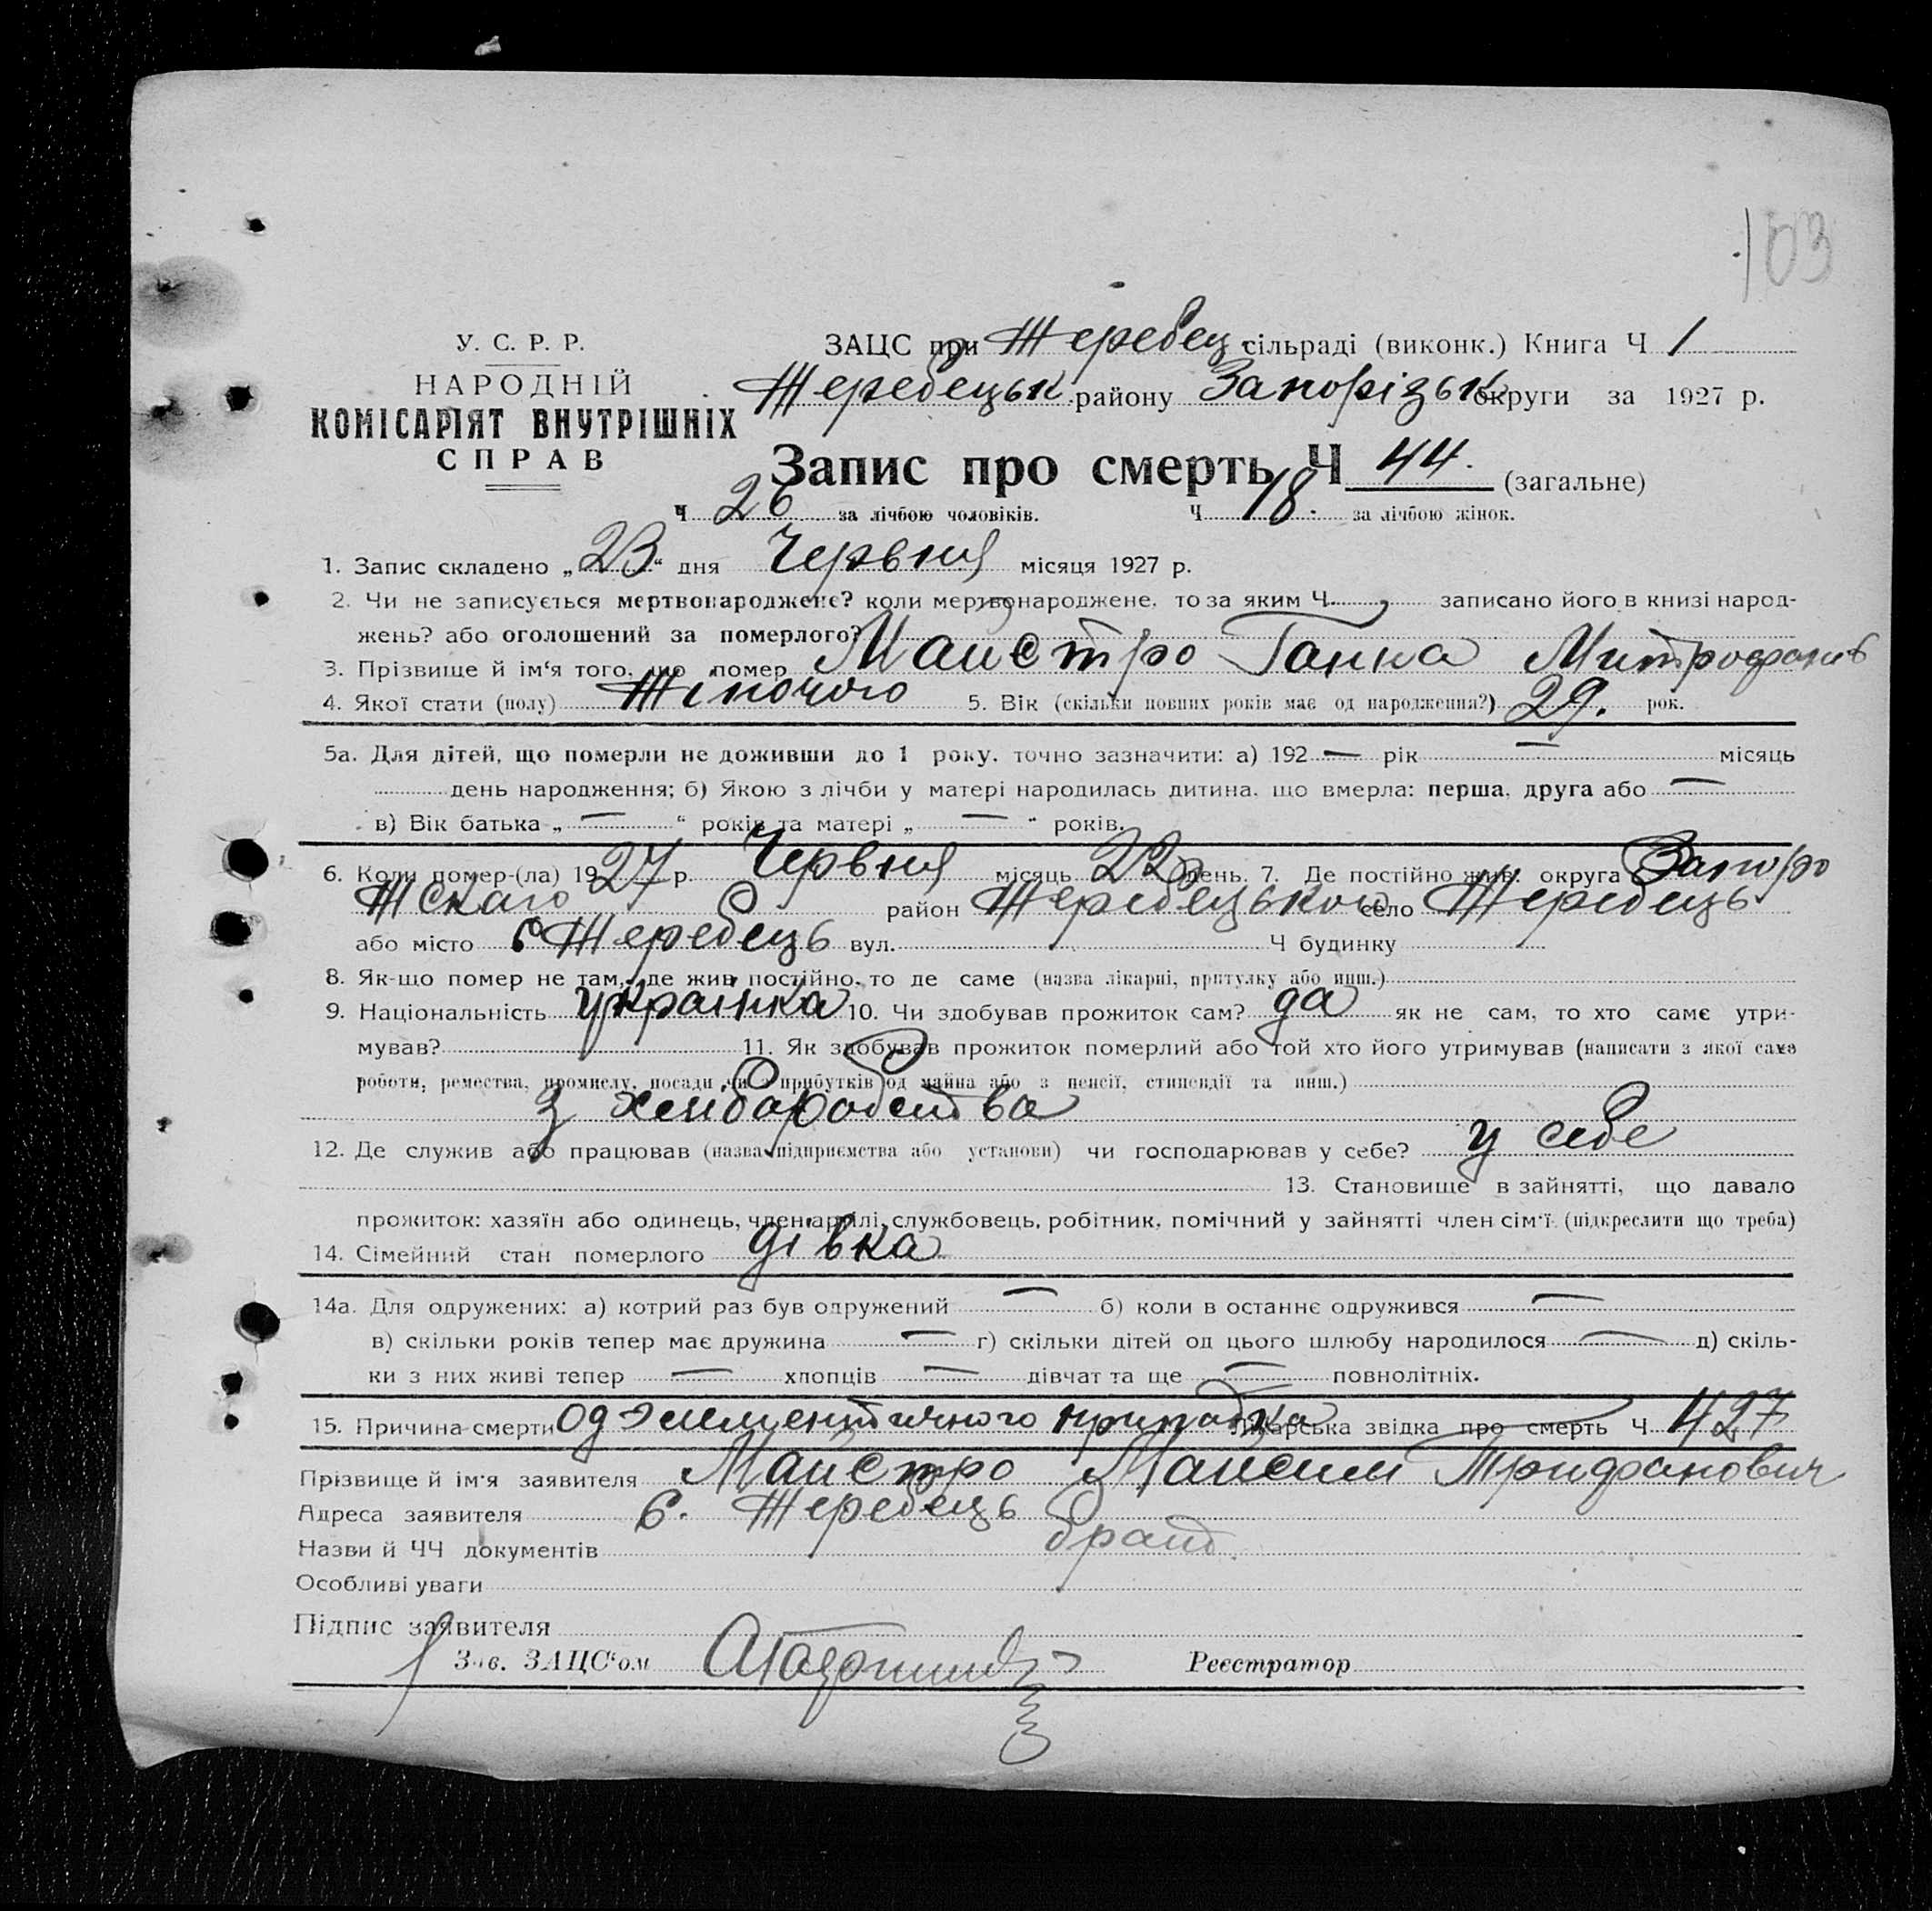 103
У. С. Р. Р.
НАРОДНІЙ
КОМІСАРІЯТ ВНУТРІШНІХ
СПРАВ
ЗАЦС при Жеребец. сільраді (виконк.) Книга Ч 1
Жеребецьк. району Запорізьк округи за 1927 р.
Запис про смерть Ч 44. (загальне)
Ч 26 за лічбою чоловіків. Ч 18. за лічбою жінок.
1. Запис складено „23“ дня Червня місяця 1927 р.
2. Чи не записується мертвонароджене? коли мертвонароджене, то за яким Ч. записано його в книзі народ-
жень? або оголошений за померлого?
3. Прізвище й ім'я того, що помер Майстро Ганна Митрофанів
4. Якої стати (полу) Жіночого 5. Вік (скільки повних років має од народження?) 29. рок.
5а. Для дітей, що померли не доживши до 1 року, точно зазначити: а) 192 — рік — місяць
день народження; б) Якою з лічби у матері народилась дитина, що вмерла: перша, друга або —
в) Вік батька „ — “ років та матері „ — “ років.
6. Коли помер-(ла) 1927 р. Червня місяць 22 день. 7. Де постійно жив: округа Запоро
жскаго район Жеребецького село Жеребець
або місто с Жеребець вул. Ч будинку
8. Як-що помер не там, де жив постійно, то де саме (назва лікарні, притулку або инш.)
9. Національність українка 10. Чи здобував прожиток сам? да як не сам, то хто саме утри-
мував? 11. Як здобував прожиток померлий або той хто його утримував (написати з якої сама
роботи, ремества, промислу, посади чи з прибутків од майна або з пенсії, стипендії та инш.)
з хлібаробства
12. Де служив або працював (назва підприємства або установи) чи господарював у себе? у себе
13. Становище в зайнятті, що давало
прожиток: хазяїн або одинець, член артілі, службовець, робітник, помічний у зайнятті член сім'ї (підкреслити що треба)
14. Сімейний стан померлого дівка
14а. Для одружених: а) котрий раз був одружений — б) коли в останнє одружився —
в) скільки років тепер має дружина — г) скільки дітей од цього шлюбу народилося — д) скіль-
ки з них живі тепер — хлопців — дівчат та ще — повнолітніх.
15. Причина смерти од припадка Лікарська звідка про смерть Ч 427
Прізвище й ім'я заявителя Майстро Максим
Адреса заявителя С. Жеребець
Назви й ЧЧ документів брат.
Особливі уваги
Підпис заявителя
Зав. ЗАЦС'ом Реєстратор